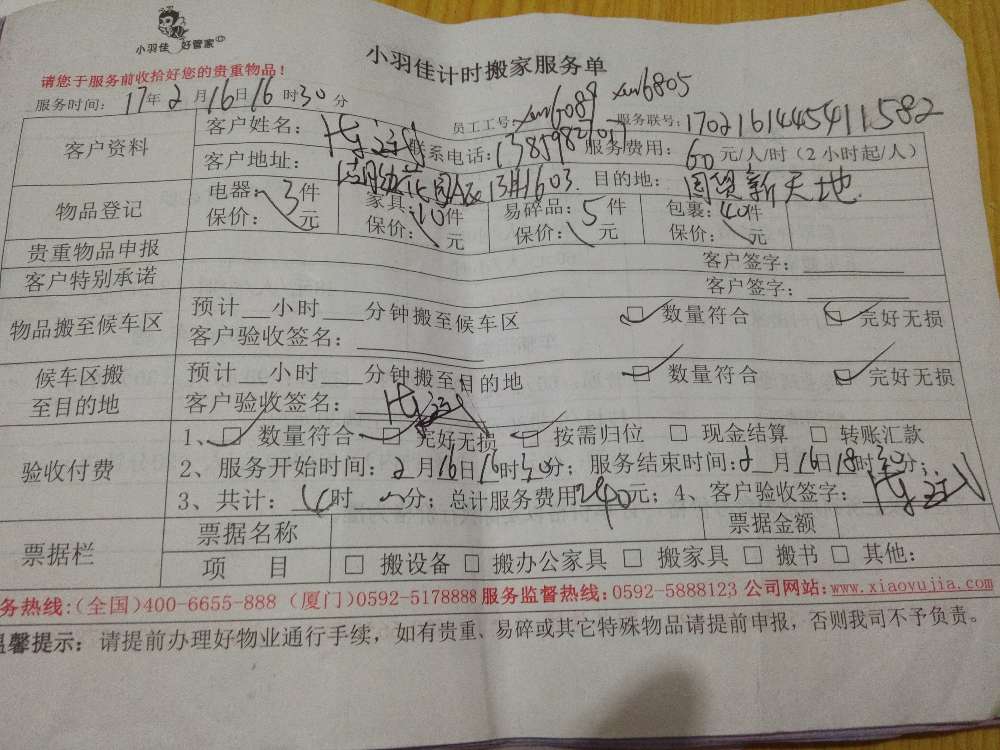 小羽佳 好管家
小羽佳计时搬家服务单
请您于服务前收拾好您的贵重物品！
服务时间：17年2月16日16时30分 员工工号：xm6089 xm6805 服务联号：1702161445411582
客户资料
客户姓名： 联系电话： 服务费用：60元/人/时（2小时起/人）
客户地址： 1603. 目的地：国贸新天地
物品登记
电器：3件 家具：10件 易碎品：5件 包裹：40件
保价：\元 保价：\元 保价：\元 保价：\元
贵重物品申报 客户签字：
客户特别承诺 客户签字：
物品搬至候车区
预计___小时___分钟搬至候车区 数量符合 完好无损
客户验收签名：
候车区搬
至目的地
预计___小时___分钟搬至目的地 数量符合 完好无损
客户验收签名：
验收付费
1、□ 数量符合 □ 完好无损 □ 按需归位 □ 现金结算 □ 转账汇款
2、服务开始时间：2月16日16时30分；服务结束时间：2月16日18时30分；
3、共计：4时 分；总计服务费用240元；4、客户验收签字：
票据栏
票据名称 票据金额
项 目 □ 搬设备 □ 搬办公家具 □ 搬家具 □ 搬书 □ 其他：
务热线：(全国)400-6655-888（厦门)0592-5178888 服务监督热线：0592-5888123 公司网站：www.xiaoyujia.com
温馨提示：请提前办理好物业通行手续，如有贵重、易碎或其它特殊物品请提前申报，否则我司不予负责。